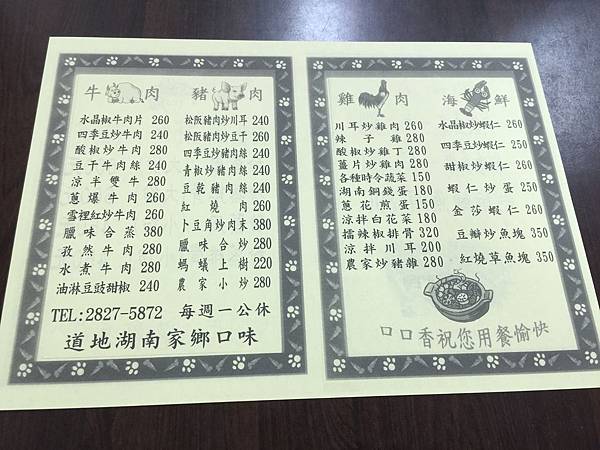 牛肉
水晶椒牛肉片 260
四季豆炒牛肉 240
酸椒炒牛肉 280
豆干牛肉絲 240
涼半雙牛 280
蔥爆牛肉 260
雪裡紅炒牛肉 260
臘味合蒸 380
孜然牛肉 280
水煮牛肉 280
油淋豆豉甜椒 240
豬肉
松阪豬肉炒川耳 240
松阪豬肉炒豆干 260
四季豆炒豬肉絲 240
青椒炒豬肉絲 240
豆乾豬肉絲 240
紅燒肉 260
卜豆角炒肉末 380
臘味合炒 280
螞蟻上樹 220
農家小炒 280
TEL:2827-5872 每週一公休
道地湖南家鄉口味
雞肉
川耳炒雞肉 260
辣子雞 280
酸椒炒雞丁 280
薑片炒雞肉 280
各種時令蔬菜 150
湖南銅錢蛋 180
蔥花煎蛋 150
涼拌白花菜 180
擂辣椒排骨 320
涼拌川耳 200
農家炒豬雜 280
海鮮
水晶椒炒蝦仁 260
四季豆炒蝦仁 250
甜椒炒蝦仁 260
蝦仁炒蛋 250
金莎蝦仁 260
豆瓣炒魚塊 350
紅燒草魚塊 350
口口香祝您用餐愉快